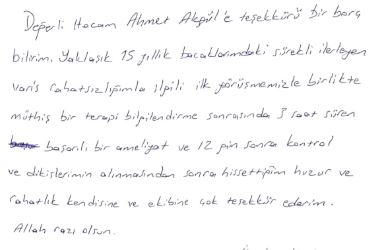 Değerli Hocam Ahmet Akgül'e teşekkürü bir borç
bilirim. Yaklaşık 15 yıllık bacaklarımdaki sürekli ilerleyen
varis rahatsızlığımla ilgili ilk görüşmemizle birlikte
müthiş bir terapi bilgilendirme sonrasında 3 saat süren
başarılı bir ameliyat ve 12 gün sonra kontrol
ve dikişlerimin alınmasından sonra hissettiğim huzur ve
rahatlık kendisine ve ekibine çok teşekkür ederim.
Allah razı olsun.